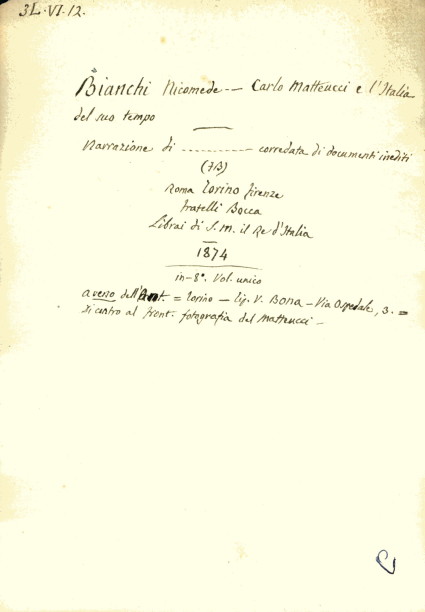 3L.VI.12.
Bianchi Nicomede -- Carlo Matteucci e l'Italia
del suo tempo
Narrazione di ----------- corredata di documenti inediti
(FB)
Roma Torino Firenze
fratelli Bocca
Librai di S. M. il Re d'Italia
1874
in-8°. Vol. unico
a verso dell'Ant. = Torino - Tip. V. Bona - Via Ospedale, 3. =
Di contro al front. fotografia del Matteucci -